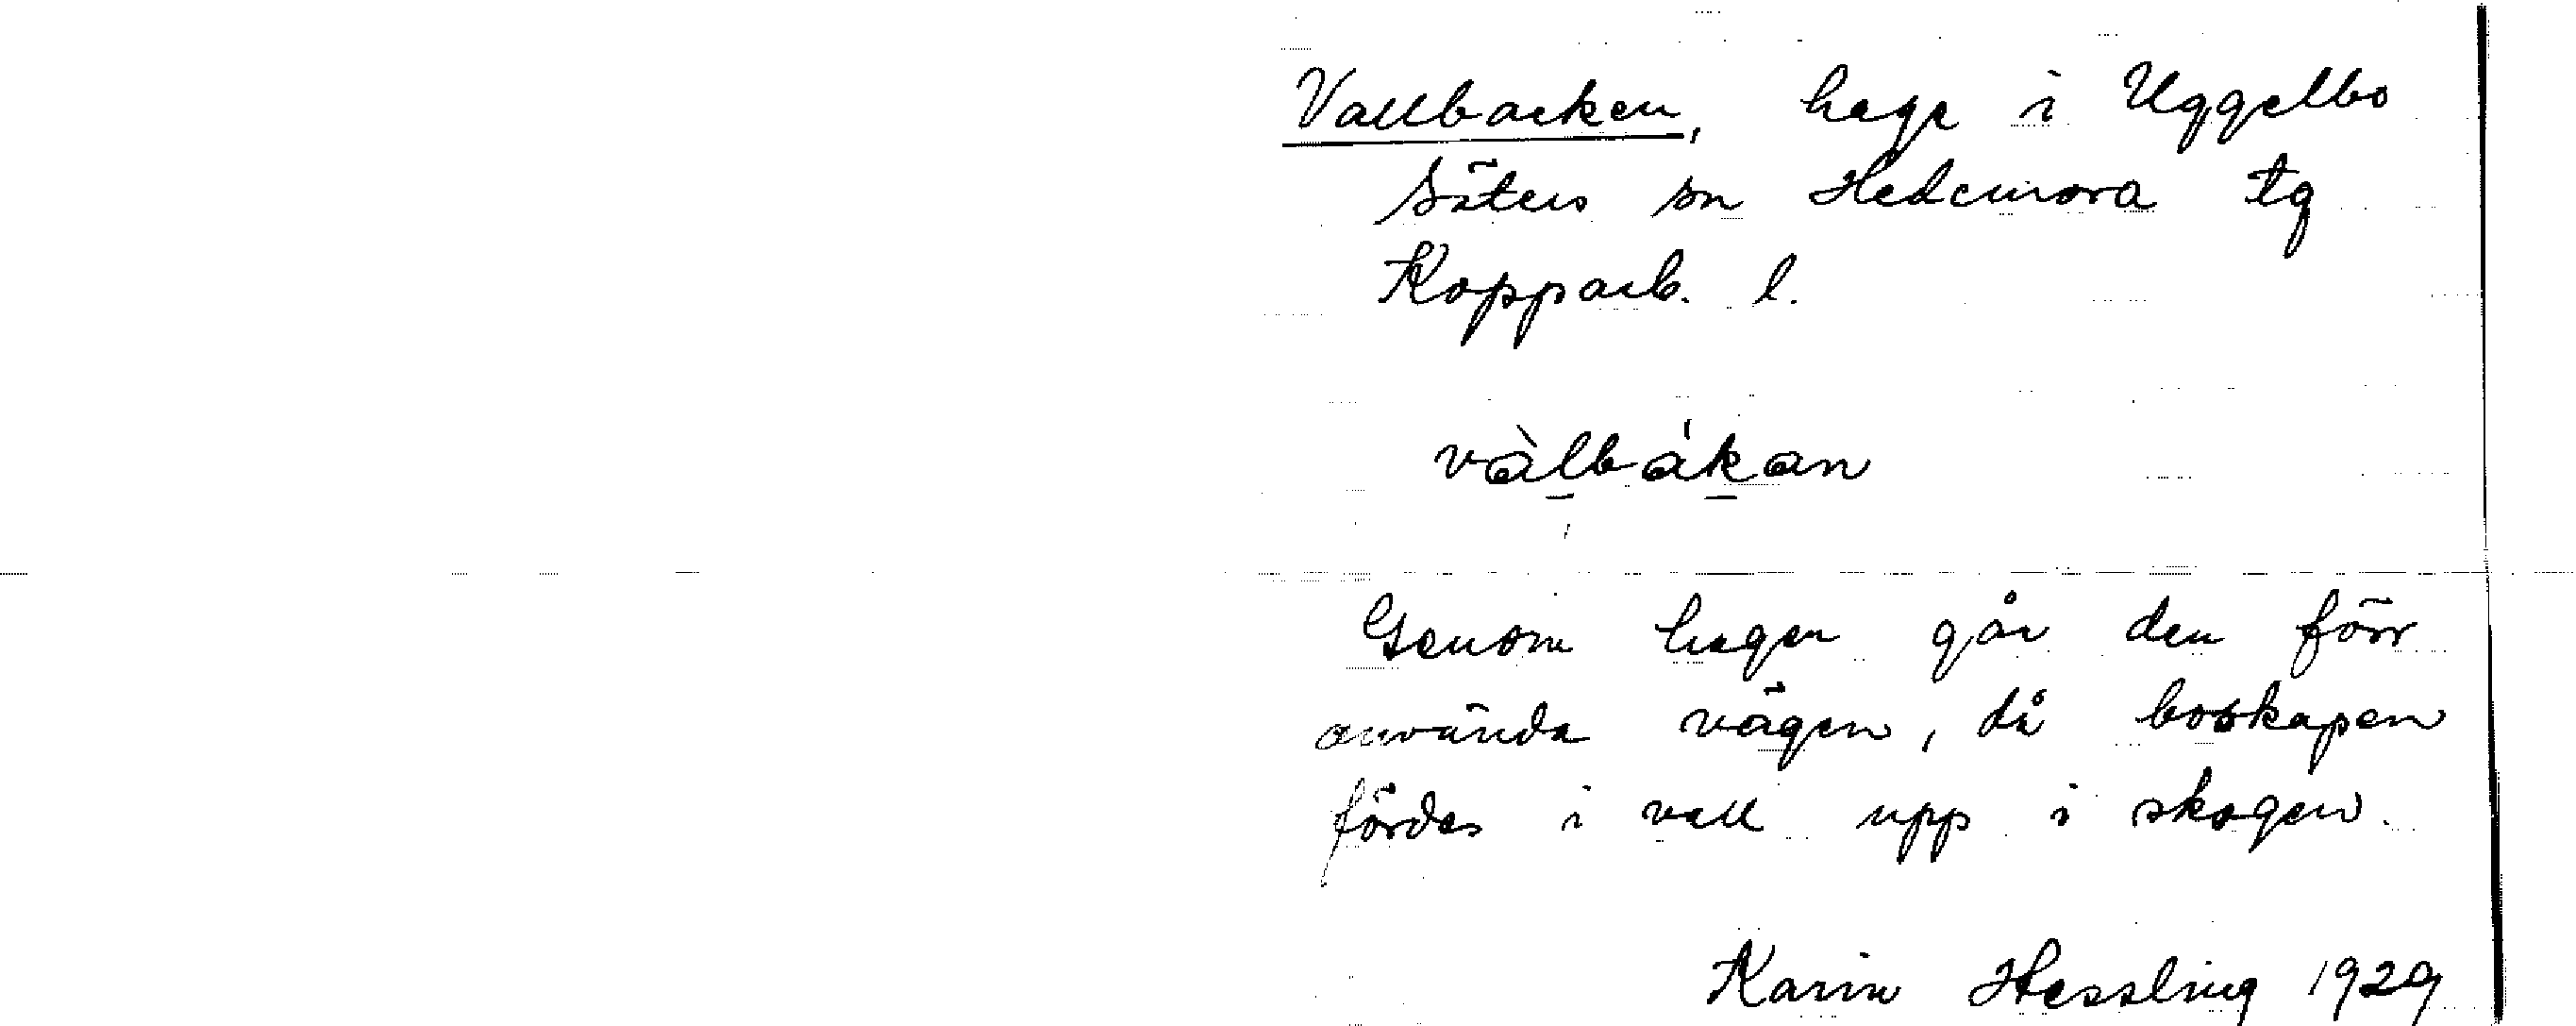 Vallbacken, hage i Uggelbo
Säters sn Hedemora tg
Kopparb. l.
vàlbákan
Genom hagen går den förr
använda vägen, då boskapen
fördes i vall upp i skogen.
Karin Hessling 1929